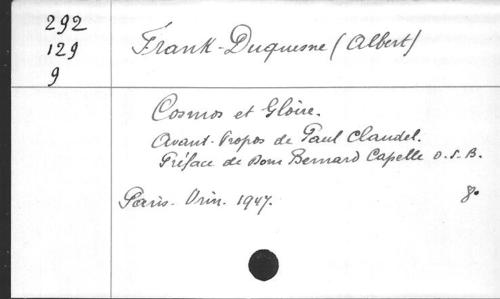 292
129
9
Frank-Duquesne (Albert)
Cosmos et Gloire.
Avant-Propos de Paul Claudel.
Préface de Dom Bernard Capelle O.S.B.
Paris. Vrin. 1947. 8o